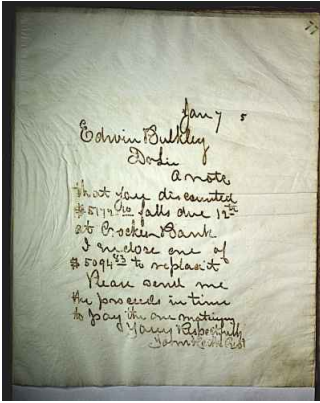 77
Jan 7 5
Edwin Bulkley
A note
that you discounted
falls due 12th
at Crocker Bank
I enclose one of
$5094 83 to replace it
Please send me
the proceeds in time
to pay the one maturing
Yours Respectfully